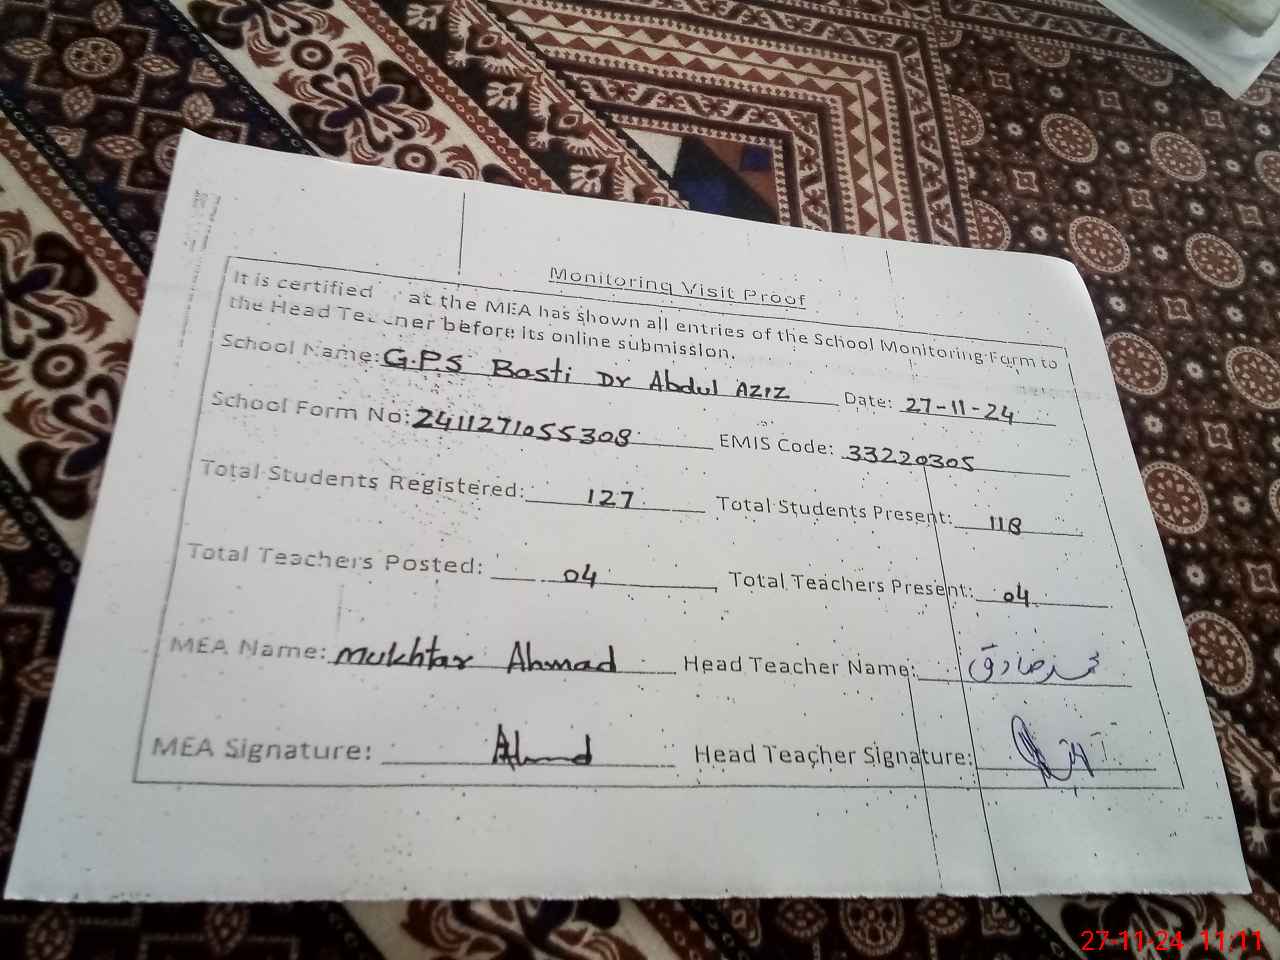 Monitoring Visit Proof
It is certified at the MEA has shown all entries of the School Monitoring Form to
the Head Teacher before its online submission.
School Name: G.P.S Basti Dr Abdul AZIZ Date: 27-11-24
School Form No: 2411271055308 EMIS Code: 33220305
Total Students Registered: 127 Total Students Present: 118
Total Teachers Posted: 04 Total Teachers Present: 04
MEA Name: Mukhtar Ahmad Head Teacher Name: محمد صادق
MEA Signature: Ahmd Head Teacher Signature:
27-11-24 11:11